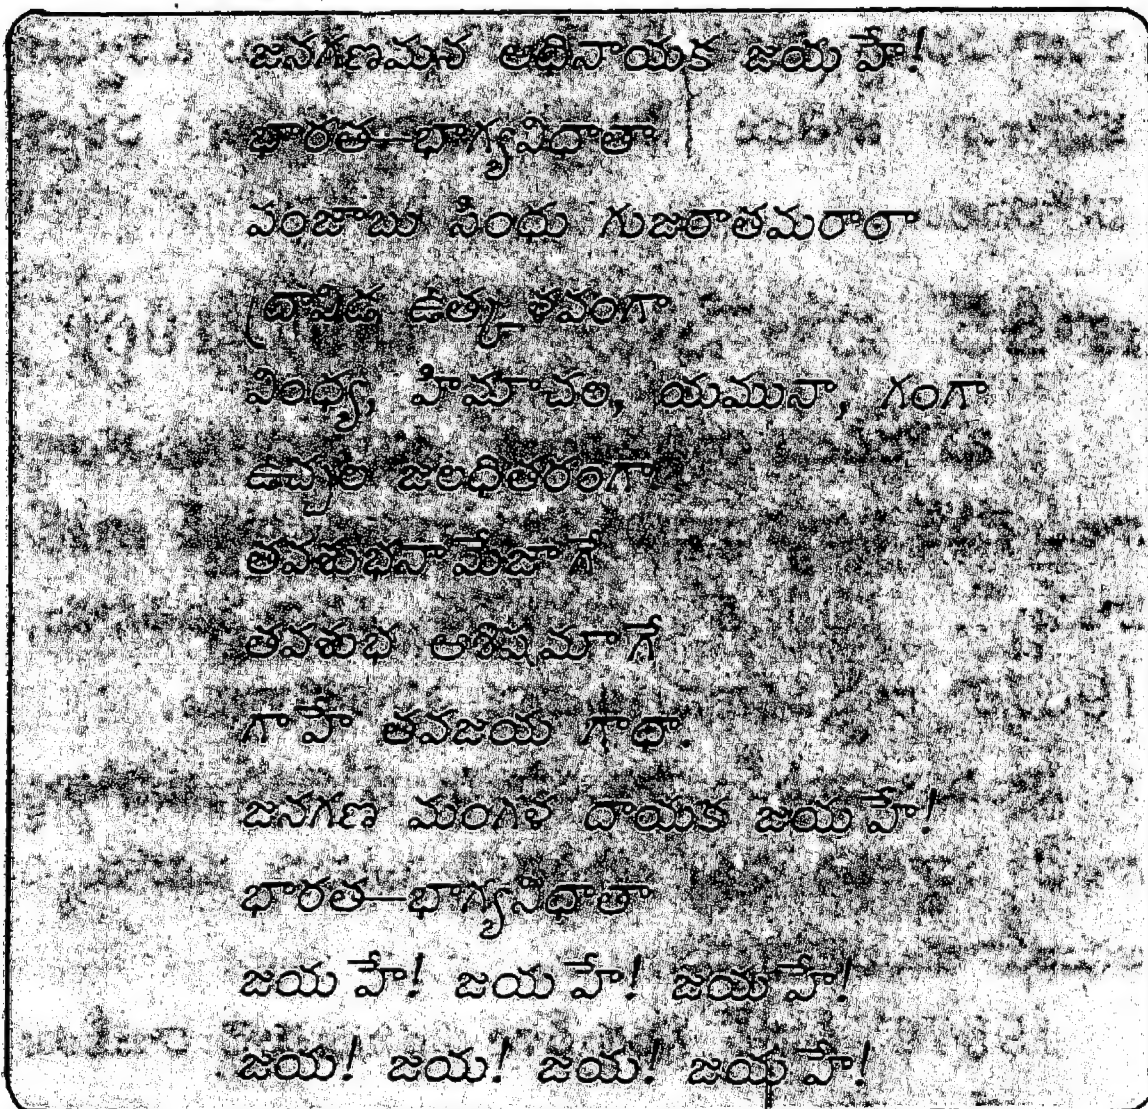 జనగణమన అధినాయక జయ హే!
భారత—భాగ్యవిధాతా
పంజాబు సింధు గుజరాతమరాఠా
ద్రావిడ ఉత్కళవంగా
వింధ్య, హిమాచల, యమునా, గంగా
ఉచ్ఛల జలధితరంగా
తవశుభనామేజాగే
తవశుభ ఆశిషమాగే
గాహే తవజయ గాథా.
జనగణ మంగళ దాయక జయ హే!
భారత—భాగ్యవిధాతా
జయ హే! జయ హే! జయ హే!
జయ! జయ! జయ! జయ హే!